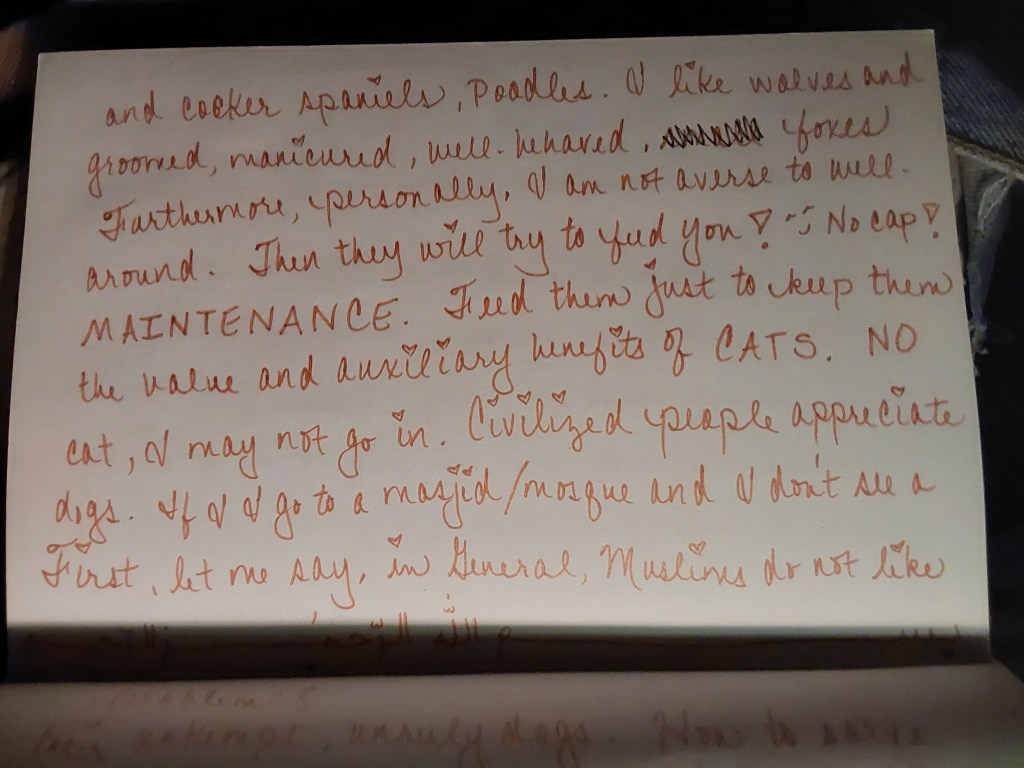 and cocker spaniels, Poodles. I like wolves and
groomed, manicured, well-behaved, foxes
Furthermore, personally, I am not averse to well-
around. Then they will try to feed you! No cap!
MAINTENANCE. Feed them just to keep them
the value and auxiliary benefits of CATS. NO
cat, I may not go in. Civilized people appreciate
dogs. If I I go to a masjid/mosque and I don't see a
First, let me say, in General, Muslims do not like
الله الرحمن
problem?
unkempt, unruly dogs. How to solve